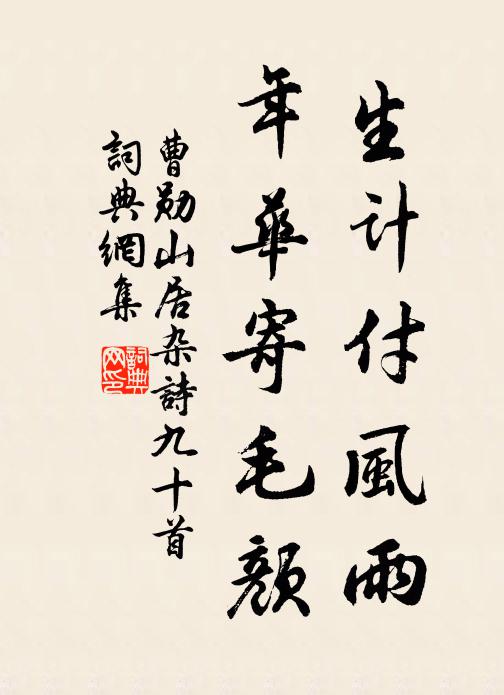 生计付風雨
年華寄毛顔
曹勛山居杂詩九十首
詞典網集
詞典網印